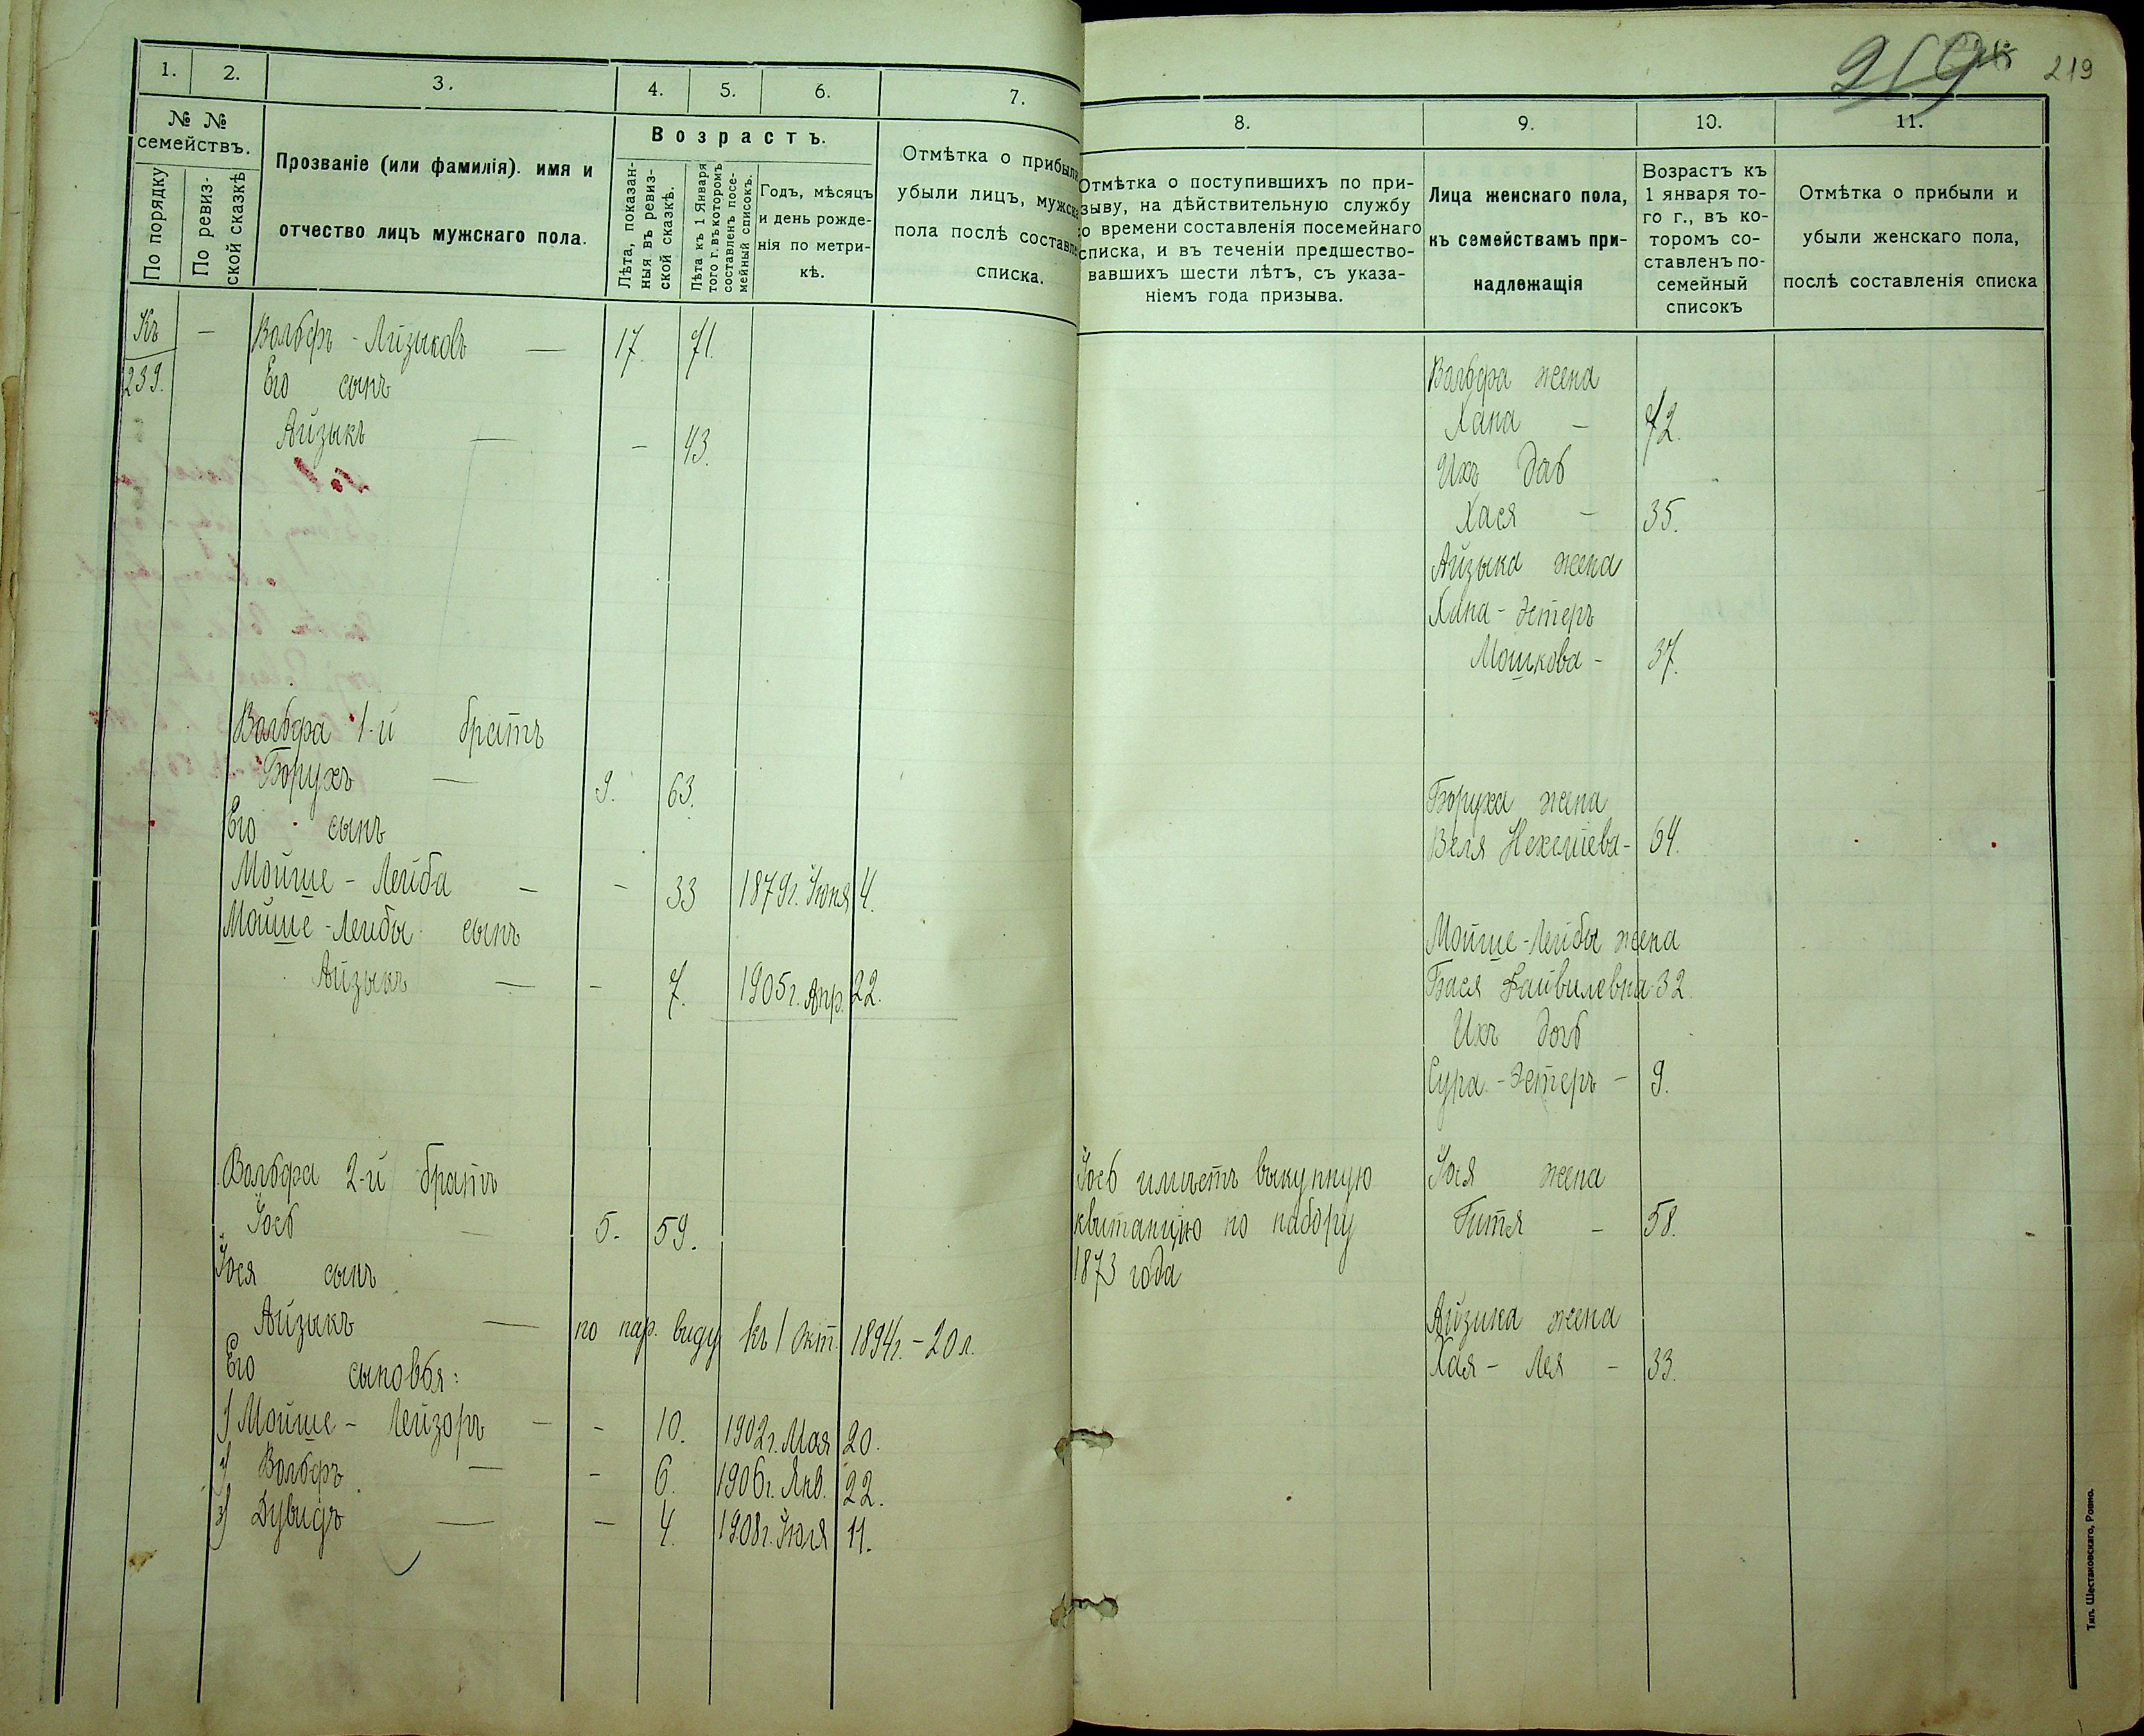 219
219
1.
2.
3.
4.
5.
6.
7.
№ №
семействъ.
По порядку
По ревиз-
ской сказкѣ
Прозваніе (или фамилія). имя и
отчество лицъ мужскаго пола.
Возрастъ.
Лѣта, показан-
ныя въ ревиз-
ской сказкѣ.
Лѣта къ 1 Января
того г. въ которомъ
составленъ посе-
мейный списокъ.
Годъ, мѣсяцъ
и день рожде-
нія по метри-
кѣ.
Отмѣтка о прибыли
убыли лицъ, мужск
пола послѣ составле
списка.
Къ — Вольфъ - Айзыковъ — 17. 71.
239. Его сынъ
Айзыкъ — — 43.
Вольфа 1-й братъ
Борухъ — 9. 63.
Его сынъ
Мойше - Лейба — — 33 1879г. Іюня 4.
Мойше - Лейбы сынъ
Айзыкъ — — 7. 1905г. Апр. 22.
Вольфа 2-й братъ
Іось — 5. 59.
Іося сынъ
Айзыкъ — по нар. виду къ 1 Окт. 1894г. - 20 л.
Его сыновья:
1) Мойше - Лейзоръ — — 10. 1902г. Мая 20.
2) Вольфъ — — 6. 1906г. Янв. 22.
3) Дувидъ — — 4. 1908г. Іюля 11.
8.
9.
10.
11.
Отмѣтка о поступившихъ по при-
зыву, на дѣйствительную службу
о времени составленія посемейнаго
списка, и въ теченіи предшество-
вавшихъ шести лѣтъ, съ указа-
ніемъ года призыва.
Лица женскаго пола,
къ семействамъ при-
надлежащія
Возрастъ къ
1 января то-
го г., въ ко-
торомъ со-
ставленъ по-
семейный
списокъ
Отмѣтка о прибыли и
убыли женскаго пола,
послѣ составленія списка
Вольфа жена
Хана — 72.
Ихъ дочь
Хася — 35.
Айзыка жена
Хана - Эстеръ
Мошкова - 37.
Боруха жена
Веля Нехемiева - 64.
Мойше - Лейбы жена
Бася Файвилевна 32.
Ихъ дочь
Сура - Эстеръ - 9.
Іось имѣетъ выкупную
квитанцію по набору
1873 года
Іося жена
Гитля — 58.
Айзика жена
Хая - Лея - 33.
Тип. Шестаковскаго, Ровно.